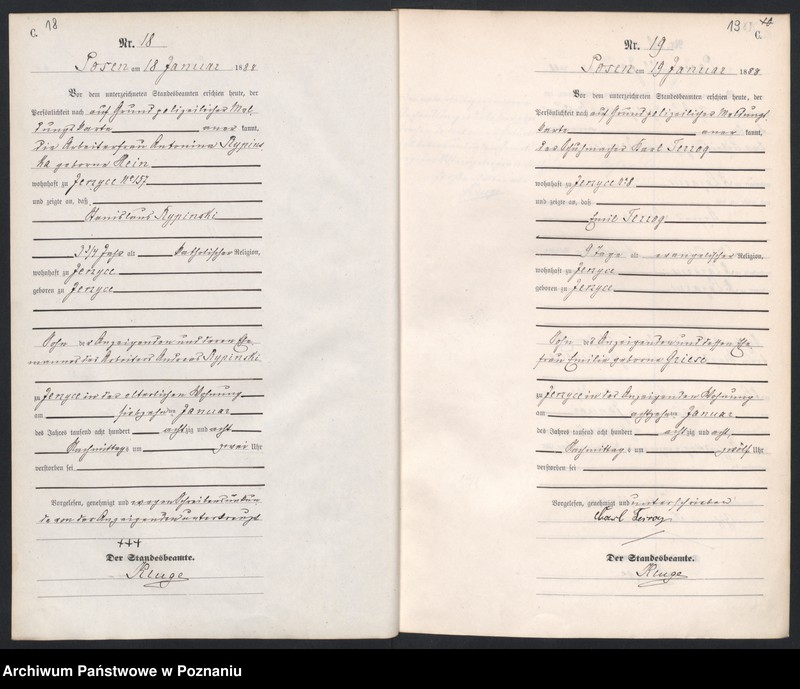 C. 18
Nr. 18
Posen am 18 Januar 1888
Vor dem unterzeichneten Standesbeamten erschien heute, der
Persönlichkeit nach auf Grund polizeilicher Mel-
dungskarte anerkannt,
die Arbeiterfrau Antonina Rypins-
ka geborne Heinz
wohnhaft zu Jerzyce No 157
und zeigte an, daß
Stanislaus Rypinski
Jahr alt katholischer Religion,
wohnhaft zu Jerzyce
geboren zu Jerzyce
Sohn der Anzeigenden und deren Ehe-
mannes des Arbeiters Andreas Rypinski
zu Jerzyce in der elterlichen Wohnung
am siebzehnten Januar
des Jahres tausend acht hundert achtzig und acht
Nachmittags um zwei Uhr
verstorben sei
Vorgelesen, genehmigt und wegen Schreibensunkun-
de von der Anzeigenden unterkreuzt
+++
Der Standesbeamte.
Kluge
19
C.
Nr. 19
Posen am 19 Januar 1888
Vor dem unterzeichneten Standesbeamten erschien heute, der
Persönlichkeit nach auf Grund polizeilicher Meldungs-
karte anerkannt,
der Schuhmacher Karl
wohnhaft zu Jerzyce
und zeigte an, daß
Emil
9 Tage alt evangelischer Religion,
wohnhaft zu Jerzyce
geboren zu Jerzyce
Sohn des Anzeigenden und dessen Ehe-
frau Emilie geborne Griese
zu Jerzyce in des Anzeigenden Wohnung
am achtzehnten Januar
des Jahres tausend acht hundert achtzig und acht
Nachmittags um zwölf Uhr
verstorben sei
Vorgelesen, genehmigt und unterschrieben
Carl
Der Standesbeamte.
Kluge
Archiwum Państwowe w Poznaniu